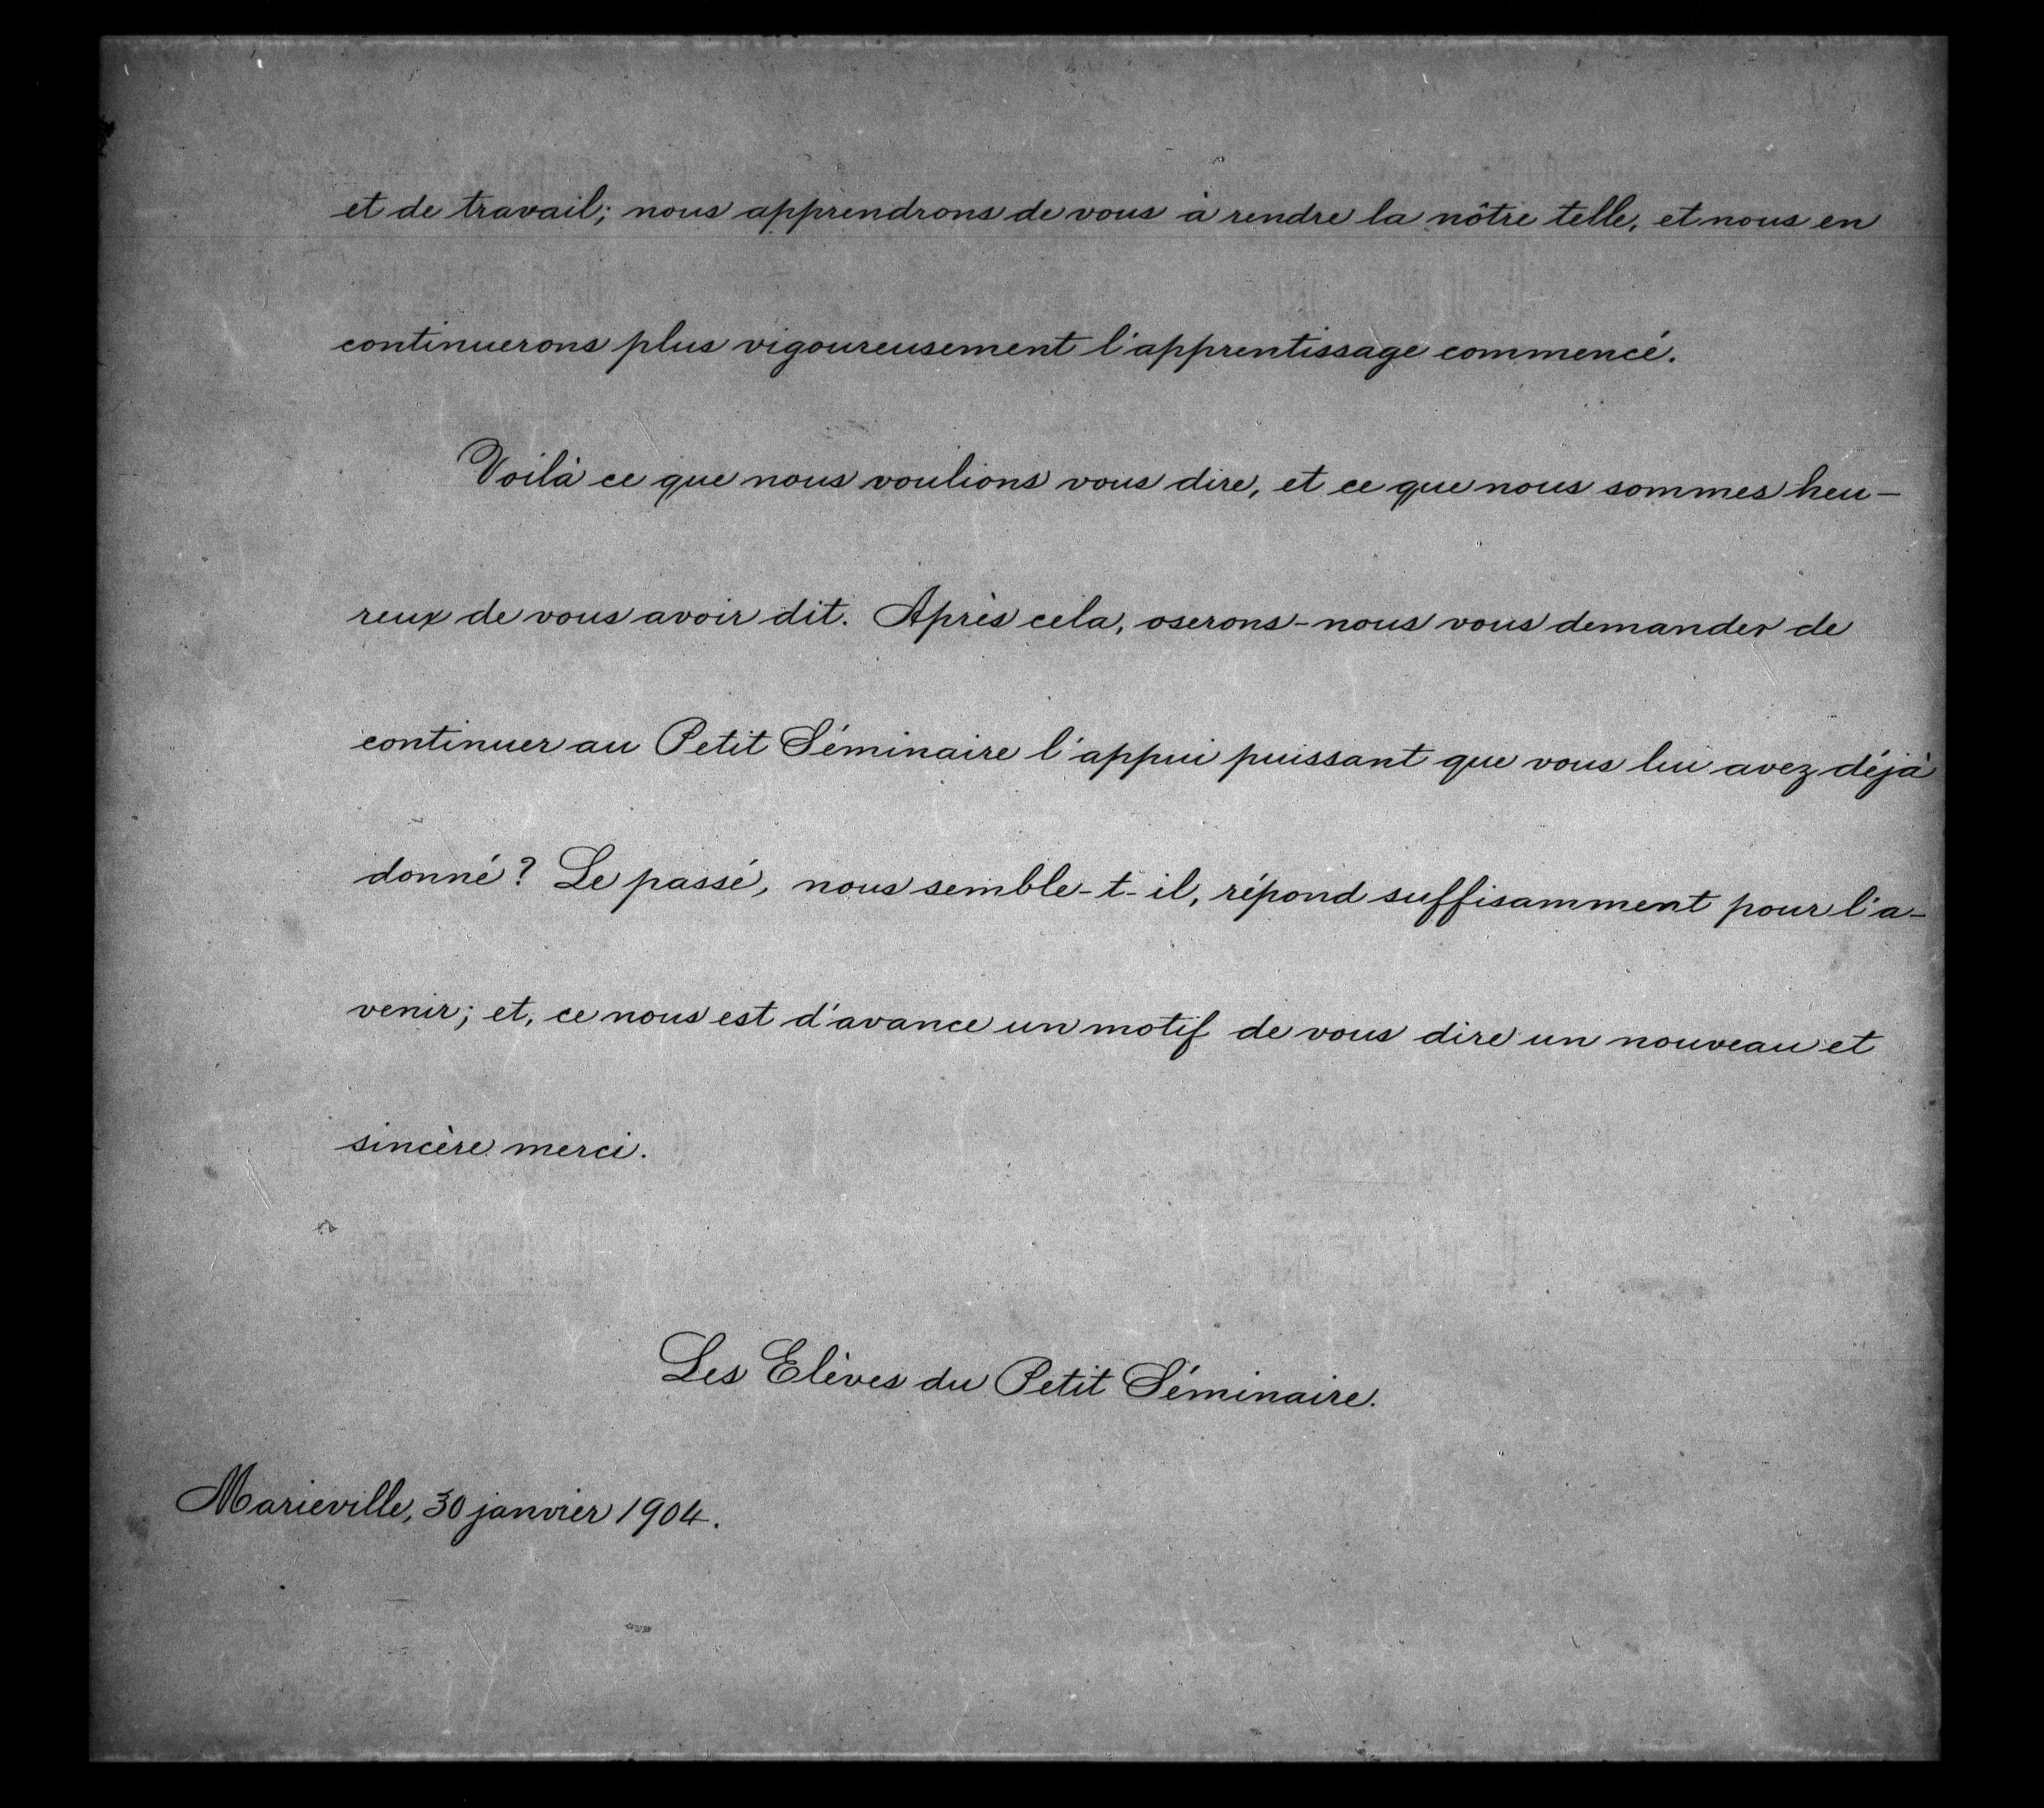 et de travail; nous apprendrons de vous à rendre la nôtre telle, et nous en
continuerons plus vigoureusement l'apprentissage commencé.
Voilà ce que nous voulions vous dire, et ce que nous sommes heu-
reux de vous avoir dit. Après cela, oserons-nous vous demander de
continuer au Petit Séminaire l'appui puissant que vous lui avez déjà
donné? Le passé, nous semble-t-il, répond suffisamment pour l'a-
venir; et, ce nous est d'avance un motif de vous dire un nouveau et
sincère merci.
Les Elèves du Petit Séminaire.
Marieville, 30 janvier 1904.